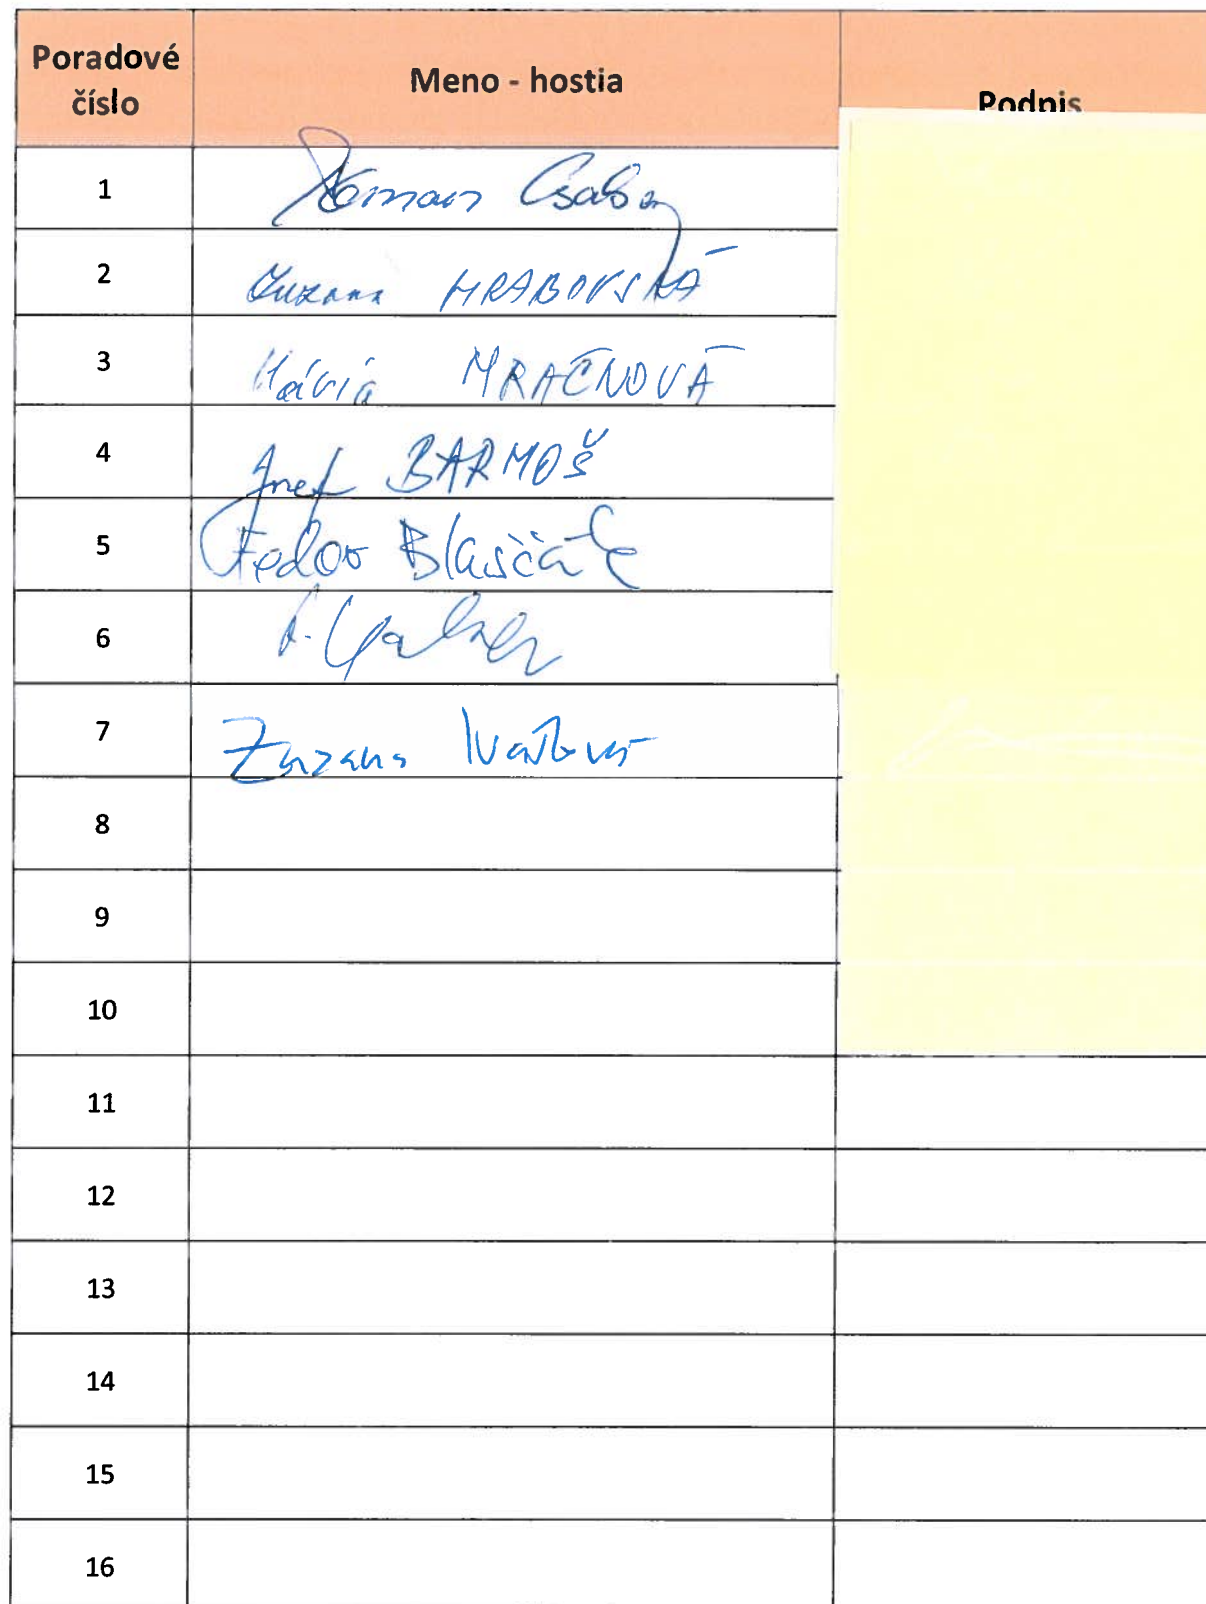 Poradové číslo Meno - hostia Podpis
1 Csaba
2 Zuzana HRABOVSKÁ
3 Mária MRAČNOVÁ
4 Jozef BARMOŠ
5 Fedor Blaščák
6
7 Zuzana
8
9
10
11
12
13
14
15
16